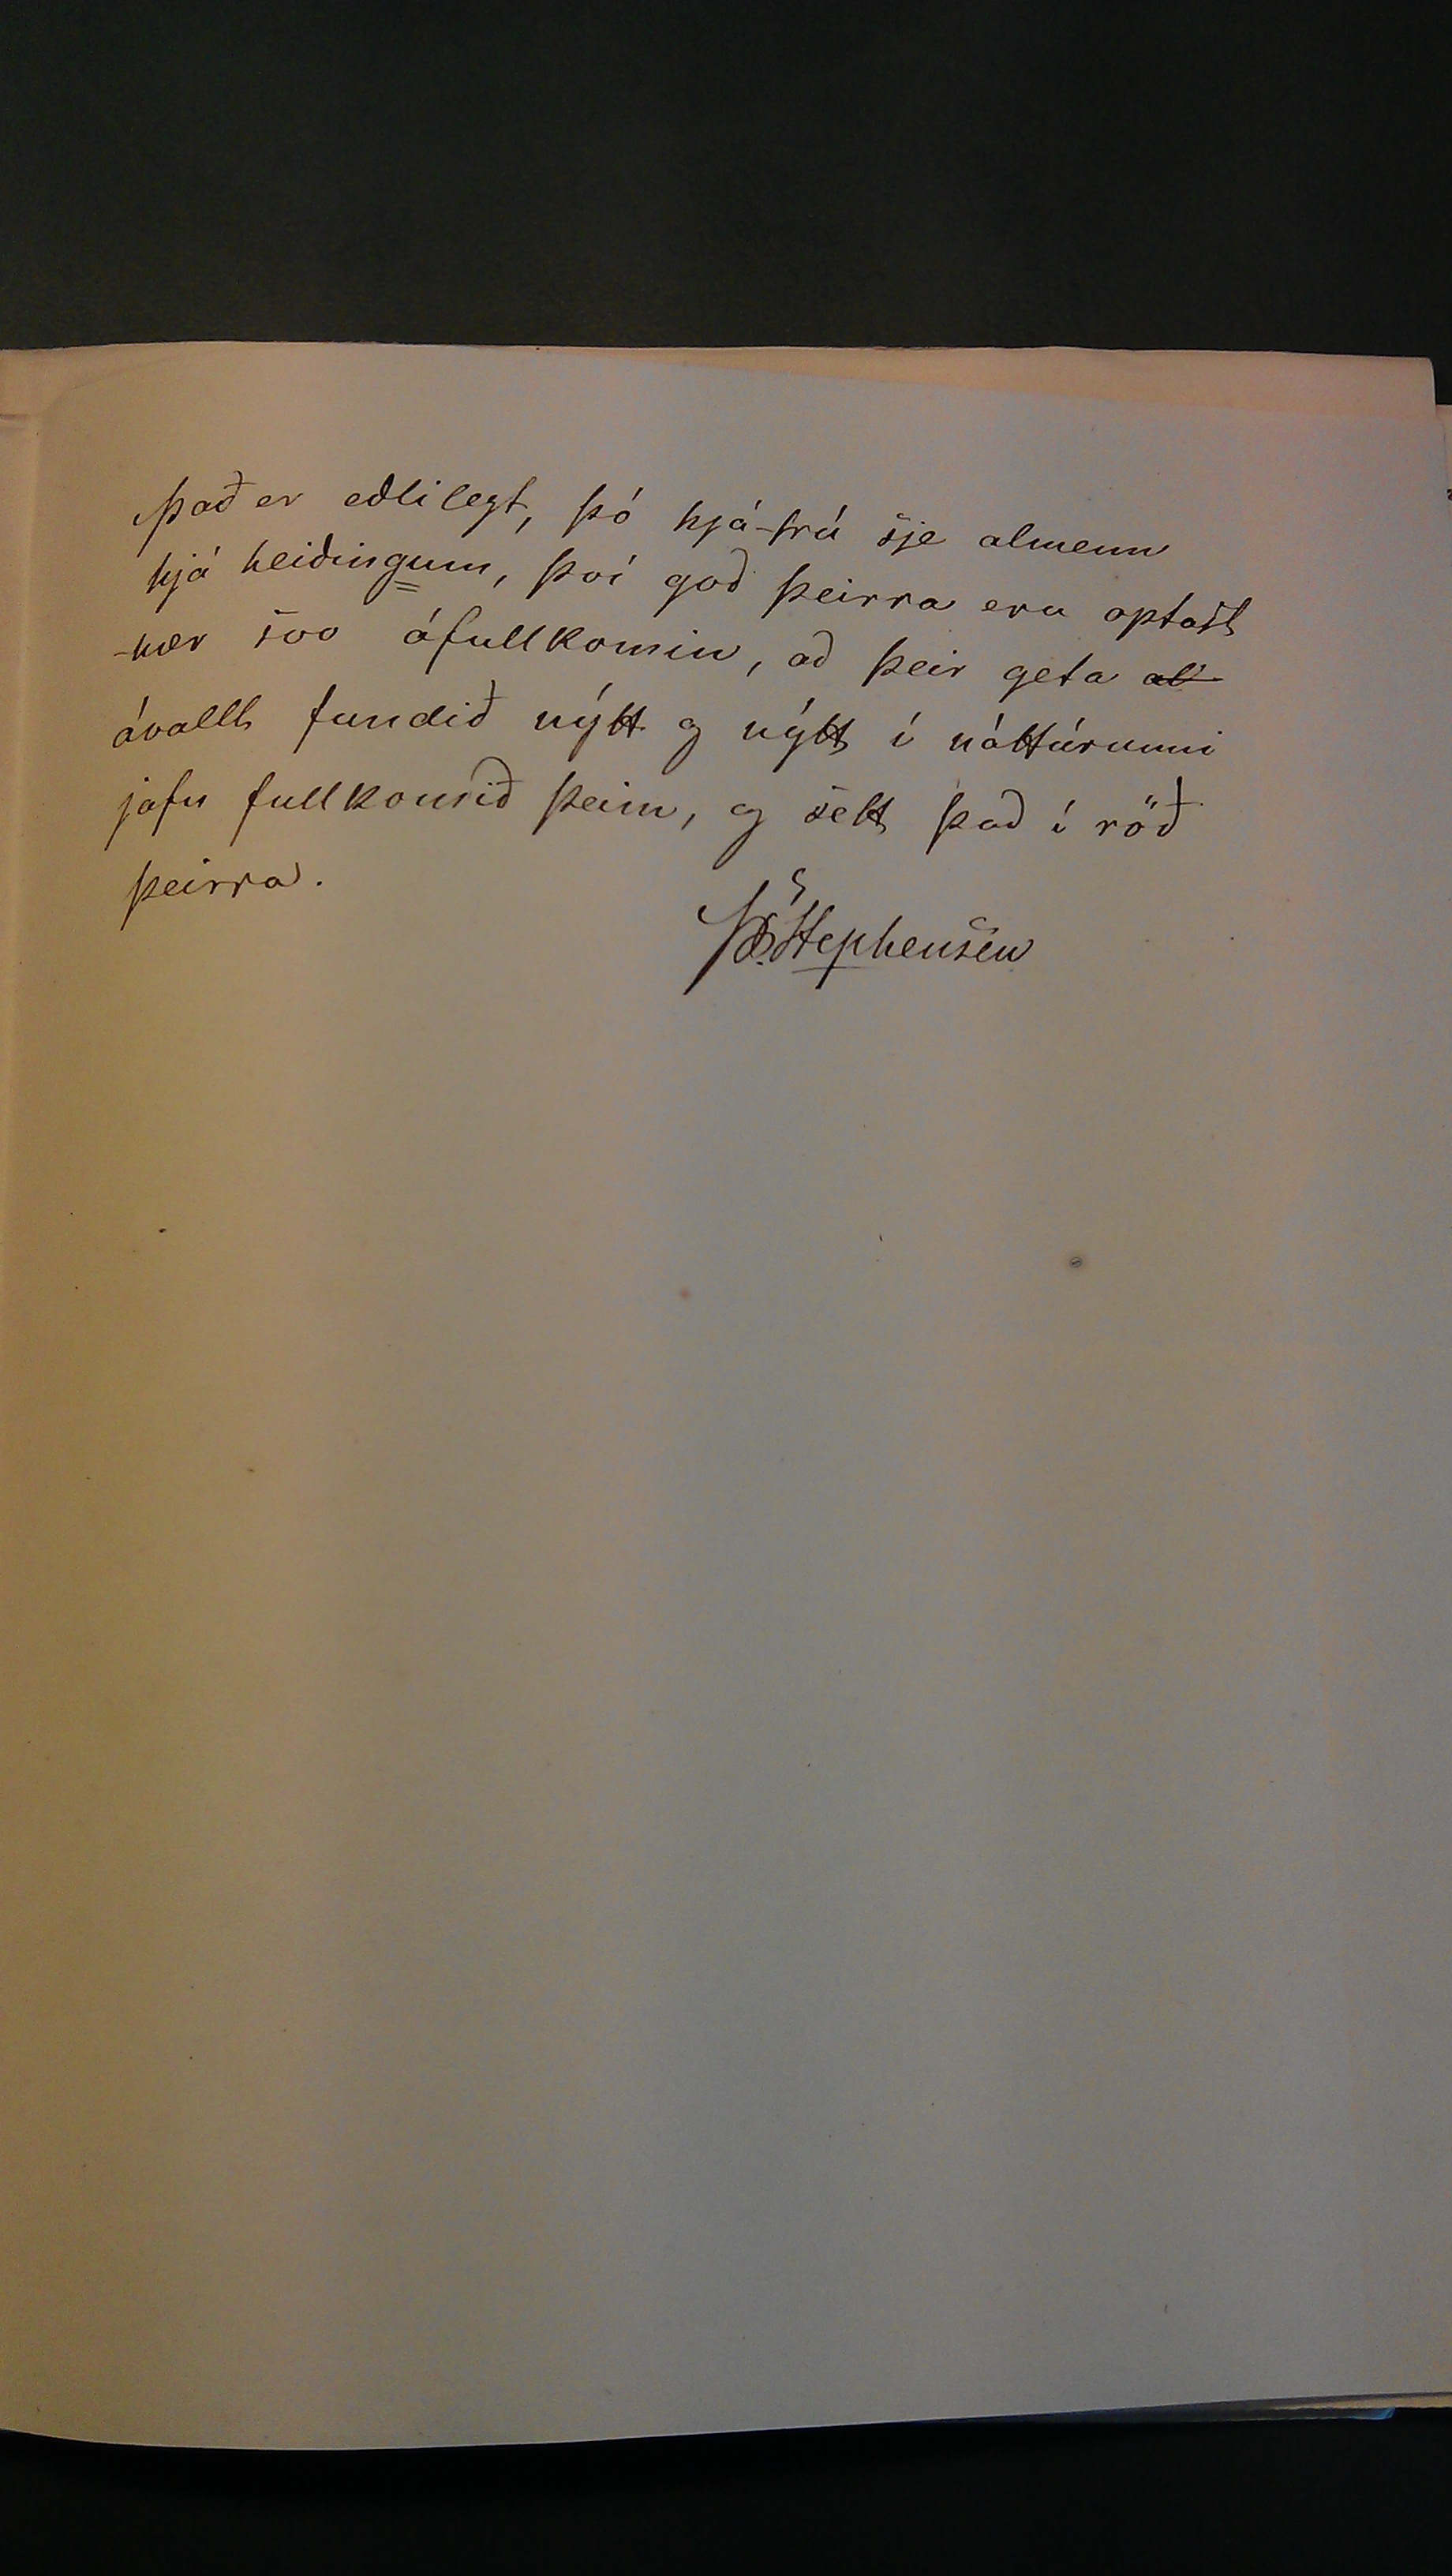 Það er eðlilegt, þó hjá-trú sje almenn
hjá heiðingum, því goð þeirra eru optast
-nær svo ófullkomin, að þeir geta al
ávallt fundið nýtt og nýtt í náttúrunni
jafn fullkomið þeim, og sett það í röð
þeirra.
Stephensen